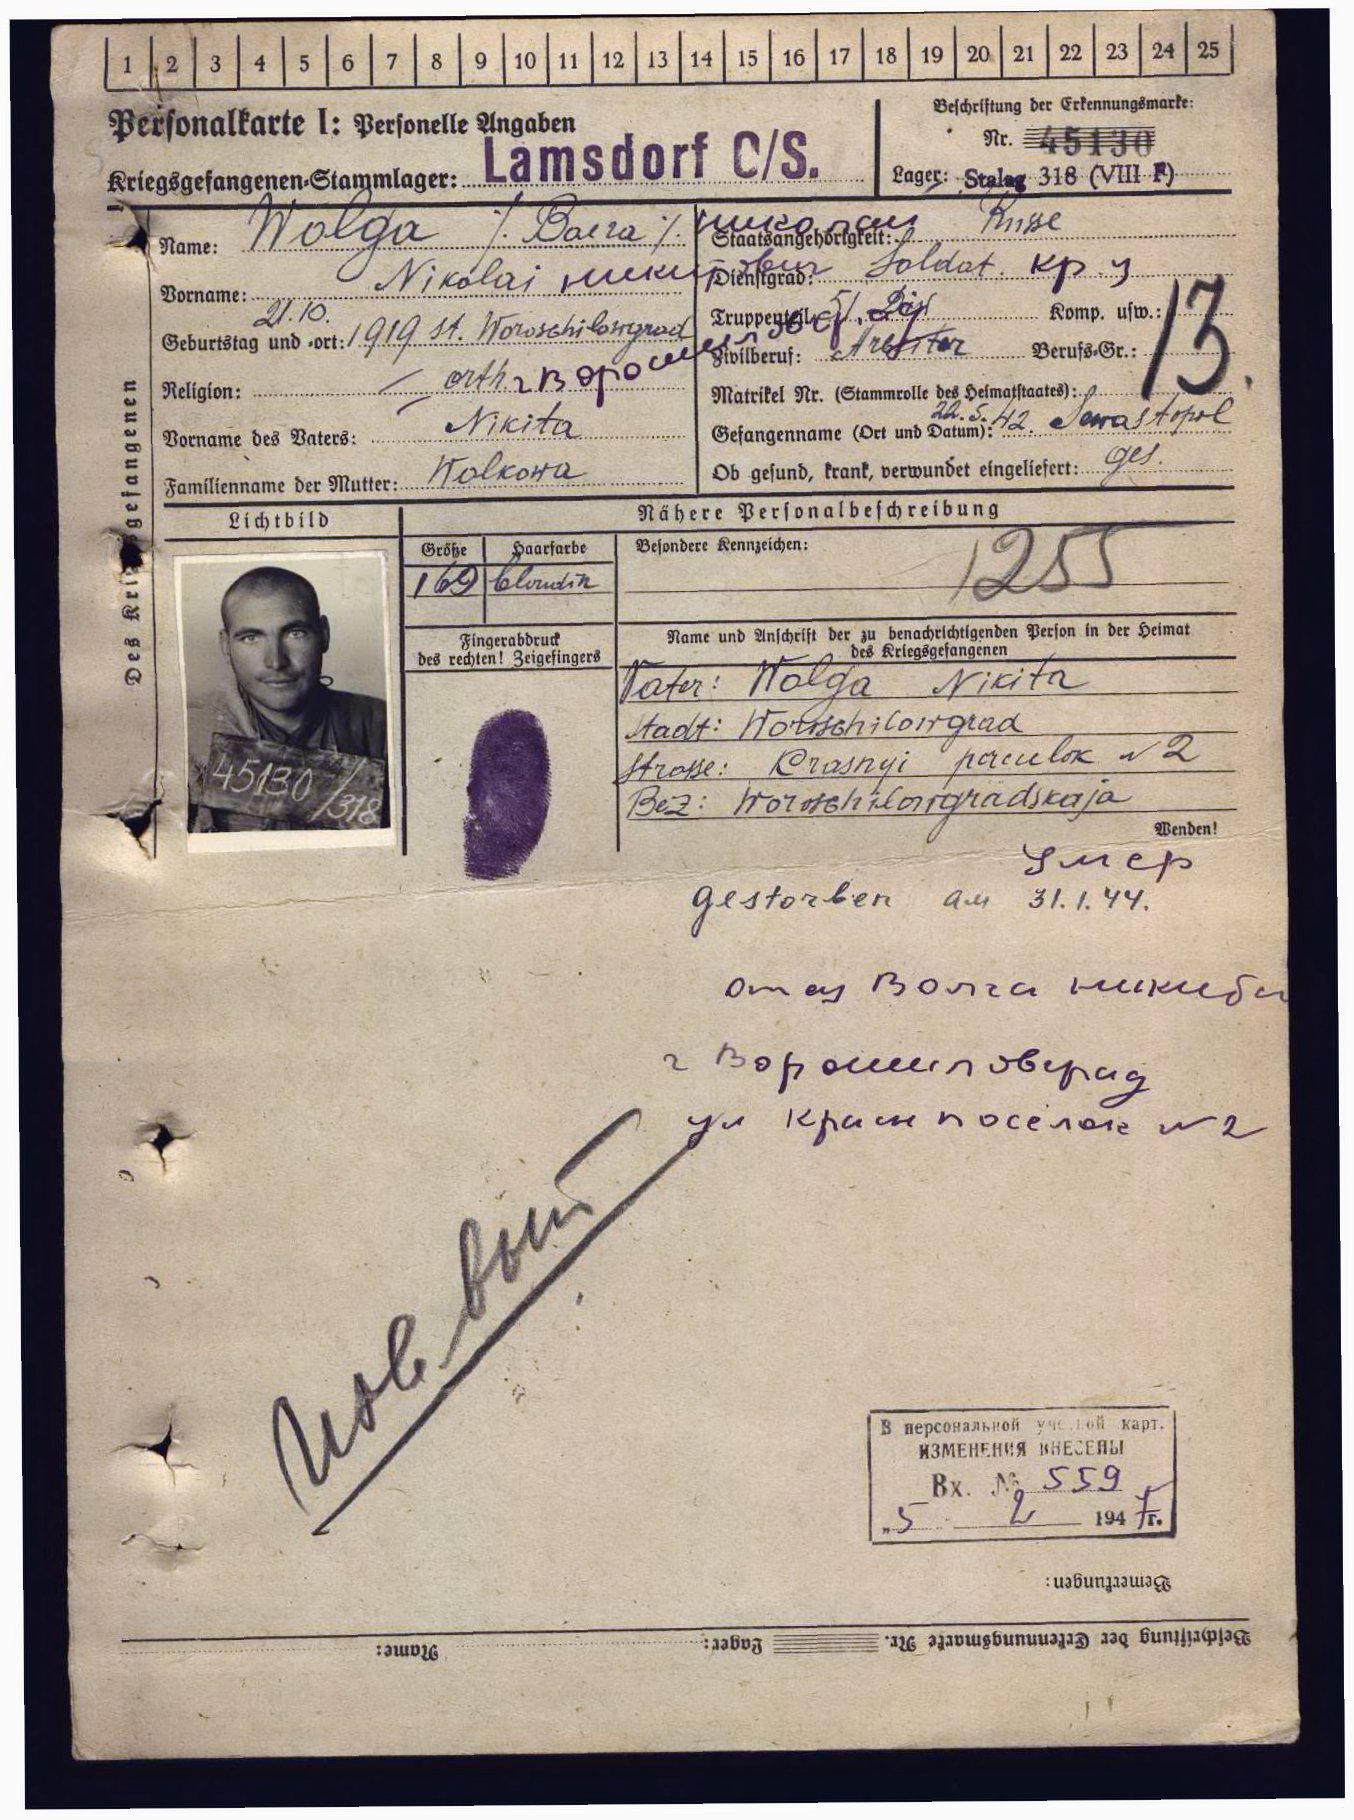 1 2 3 4 5 6 7 8 9 10 11 12 13 14 15 16 17 18 19 20 21 22 23 24 25
Personalkarte I: Personelle Angaben
Kriegsgefangenen-Stammlager: Lamsdorf C/S.
Beschriftung der Erkennungsmarke:
Nr. 45130
Lager: Stalag 318 (VIII F)
Des Kriegsgefangenen
Name: Wolga /. Волга /. николаи
Vorname: Nikolai
Geburtstag und -ort: 21.10. 1919 st. Woroschilowgrad
Religion: orth. г Ворошиловгр
Vorname des Vaters: Nikita
Familienname der Mutter: Wolkowa
Staatsangehörigkeit: Russe
Dienstgrad: Soldat. кр
Truppenteil: 51. Komp. usw.:
Zivilberuf: Arbeiter Berufs-Gr.: 13.
Matrikel Nr. (Stammrolle des Heimatstaates):
Gefangenname (Ort und Datum): 22.5.42. Sewastopol
Ob gesund, krank, verwundet eingeliefert: ges.
Lichtbild
Nähere Personalbeschreibung
Größe Haarfarbe
169 blondin
Besondere Kennzeichen:
1255
Fingerabdruck
des rechten! Zeigefingers
45130/318
Name und Anschrift der zu benachrichtigenden Person in der Heimat
des Kriegsgefangenen
Vater: Wolga Nikita
Stadt: Woroschilowgrad
Strasse: Krasnyi N 2
Bez: Woroschilowgradskaja
Wenden!
Умер
gestorben am 31.1.44.
Волга
г Ворошиловград
ул Красн поселок N 2
В персональной учетной карт.
ИЗМЕНЕНИЯ ВНЕСЕНЫ
Вх. № 559
„5 2 1947г.
Bemerkungen:
Beschriftung der Erkennungsmarke Nr. Lager: Name: